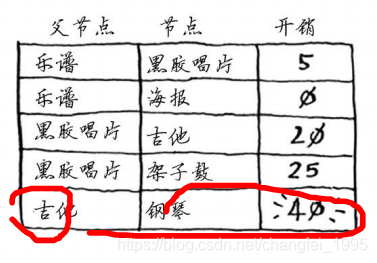 父节点 节点 开销
乐谱 黑胶唱片 5
乐谱 海报 0
黑胶唱片 吉他 20
黑胶唱片 架子鼓 25
吉他 钢琴 40
https://blog.csdn.net/changlei_1995